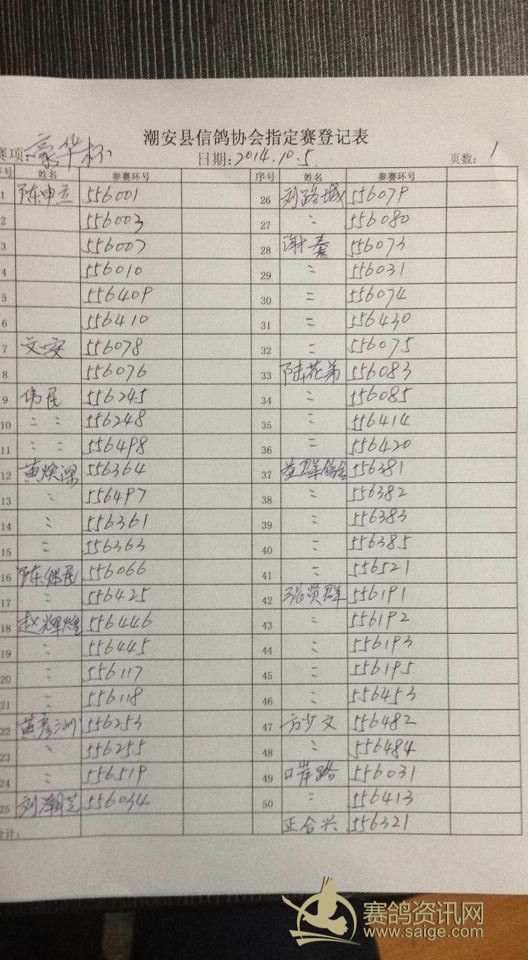 潮安县信鸽协会指定赛登记表
赛项:豪华杯 日期:2014.10.5. 页数:1
序号 姓名 参赛环号 序号 姓名 参赛环号
1 陈申立 556001 26 刘路城 556079
2 556003 27 〃 556080
3 556007 28 谢秦 556073
4 556010 29 〃 556031
5 556409 30 〃 556074
6 556410 31 〃 556430
7 文安 556078 32 〃 556075
8 556076 33 陆花弟 556083
9 伟民 556245 34 〃 556085
10 〃 〃 556248 35 〃 556414
11 〃 〃 556498 36 〃 556420
12 黄焕深 556364 37 益群鸽舍 556381
13 〃 556497 38 〃 556382
14 〃 556361 39 〃 556383
15 〃 556363 40 〃 556385
16 陈伟民 556066 41 〃 556521
17 〃 556425 42 张贤群 556191
18 赵辉煌 556446 43 〃 556192
19 〃 556445 44 〃 556193
20 〃 556117 45 〃 556195
21 〃 556118 46 〃 556453
22 黄彦洲 556253 47 方少文 556482
23 〃 556255 48 〃 556484
24 〃 556519 49 口岸路 556031
25 刘潮芝 556034 50 〃 556413
合计: 正合兴 556321
赛鸽资讯网
www.saige.com